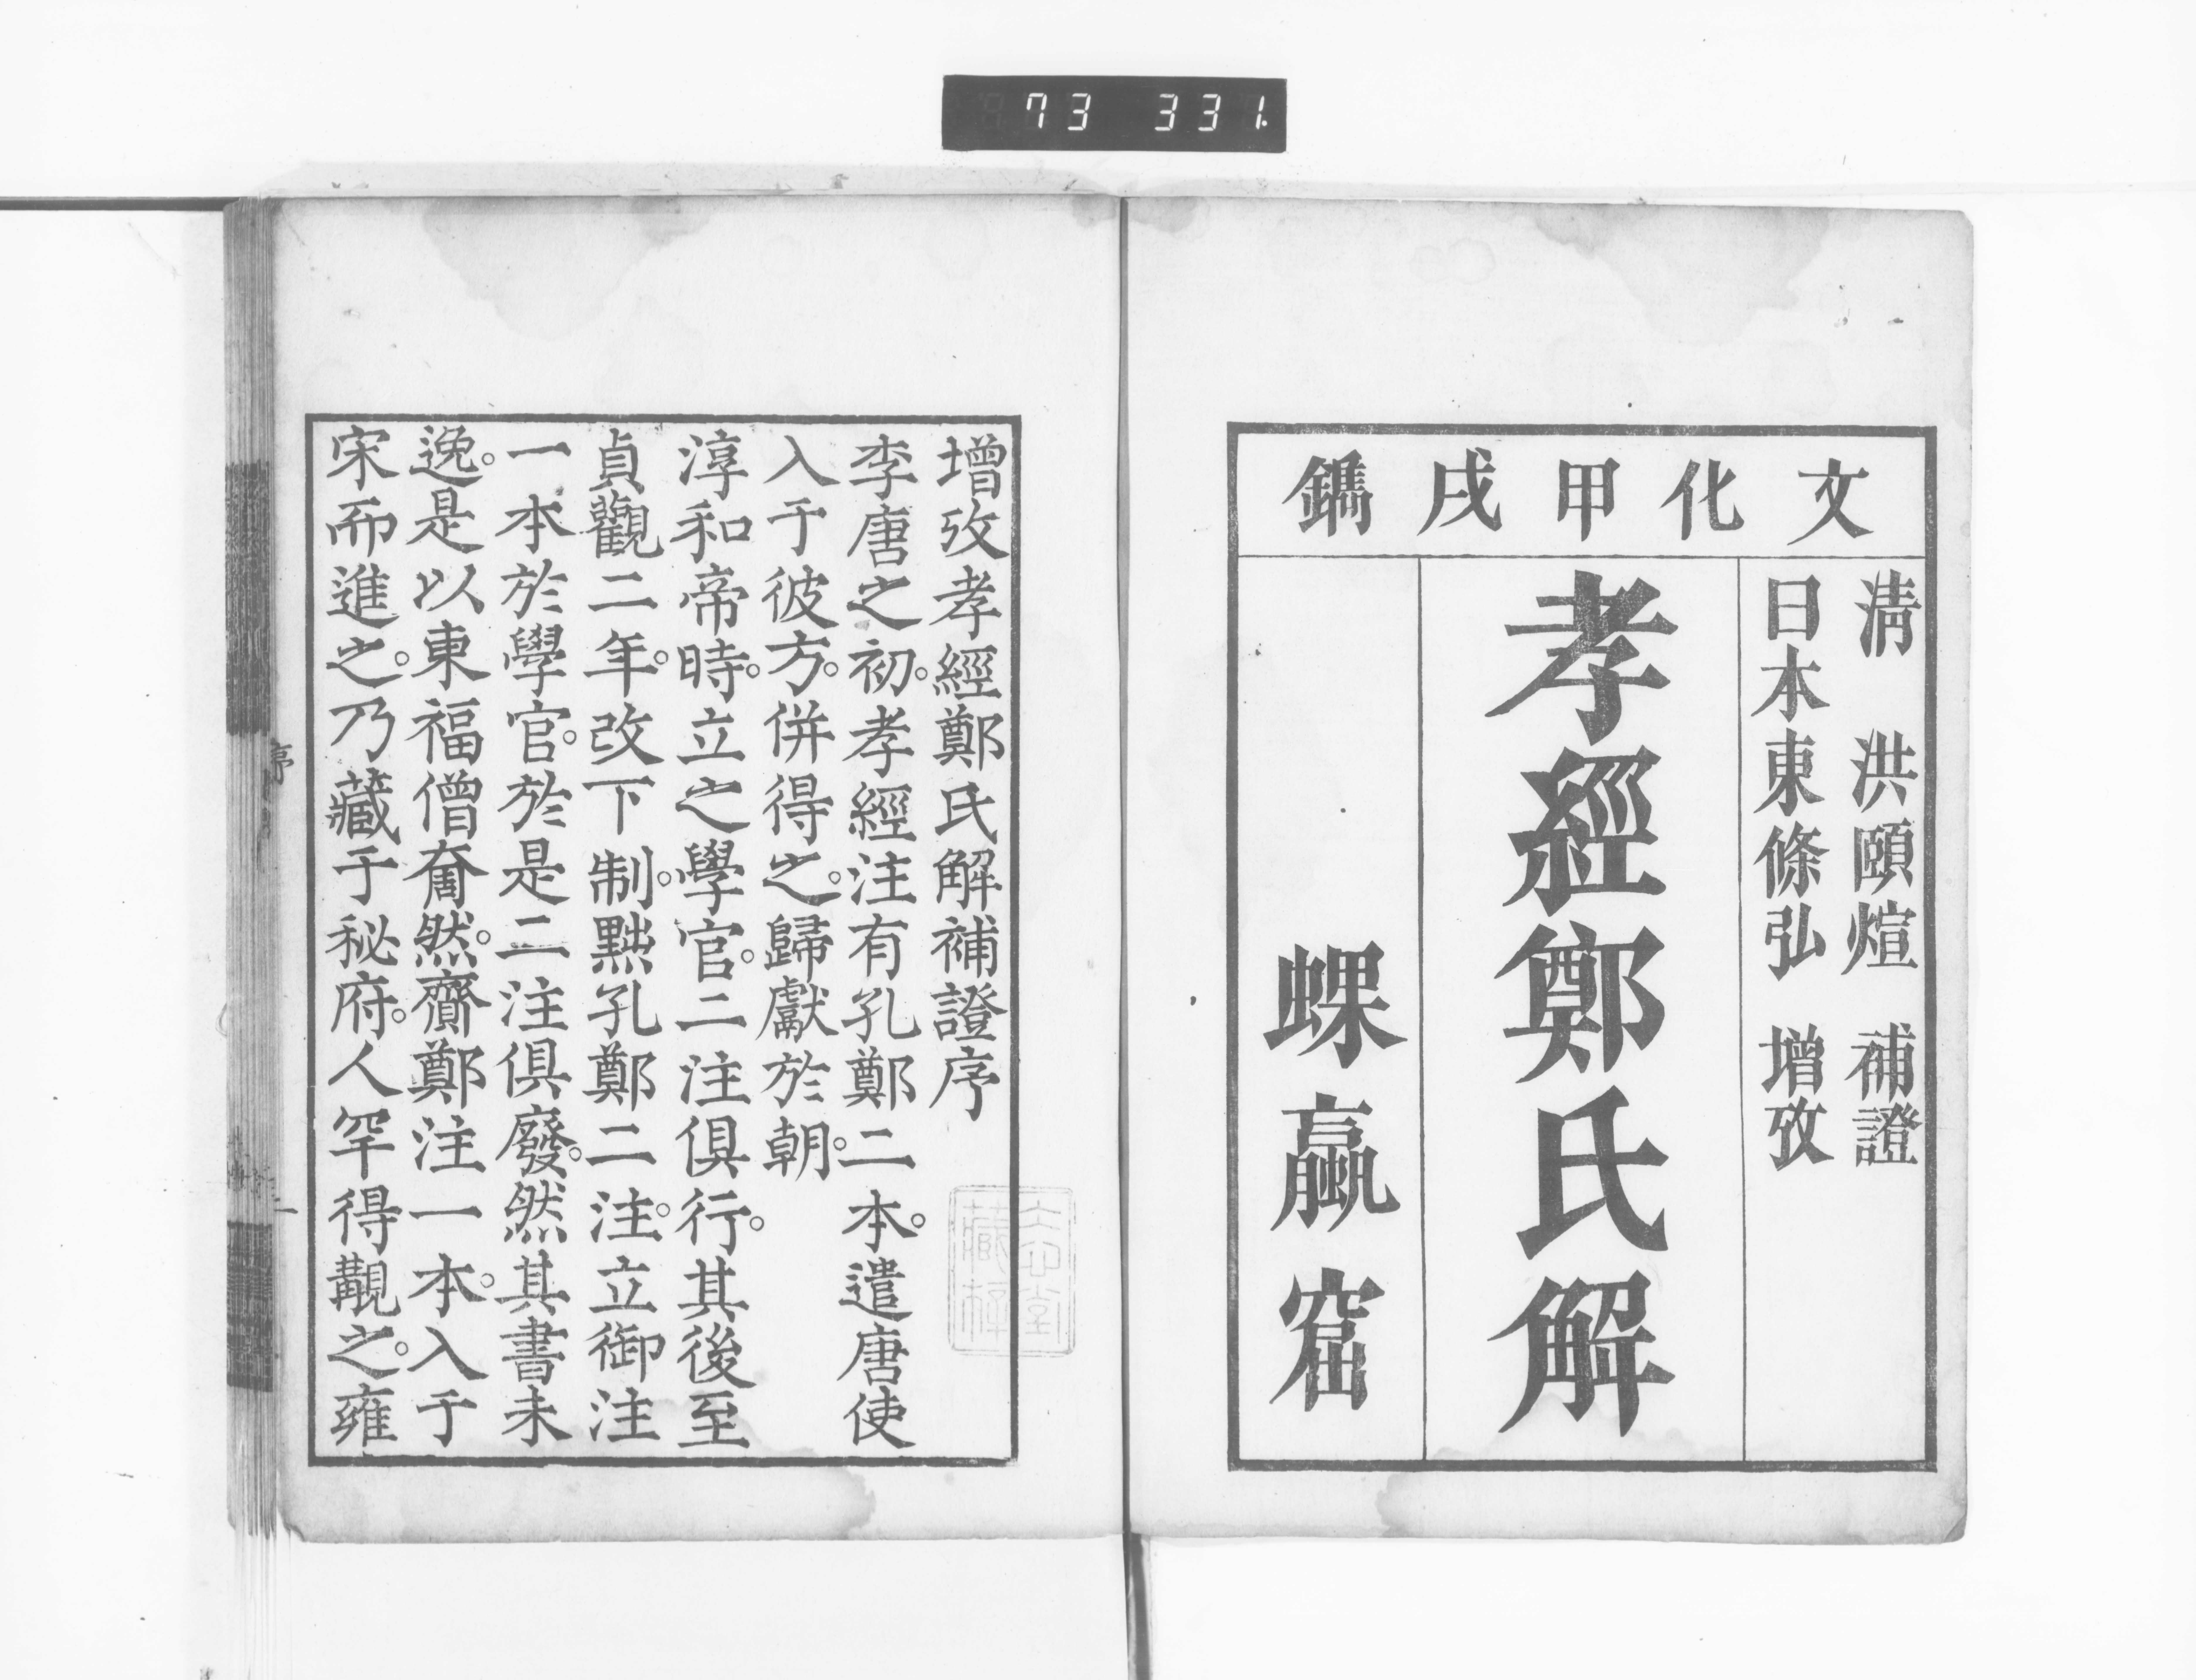 73 331.
文化甲戌鐫
清 洪頤煊 補證
日本東條弘 增攷
孝經鄭氏解
蜾蠃窟
增攷孝經鄭氏解補證序
李唐之初。孝經注有孔鄭二本。遣唐使
入于彼方。併得之。歸獻於朝。
淳和帝時。立之學官。二注俱行。其後至
貞觀二年。改下制。黜孔鄭二注。立御注
一本於學官。於是二注俱廢。然其書未
逸。是以東福僧奝然。齎鄭注一本。入于
宋而進之。乃藏于秘府。人罕得覯之。雍
序
一